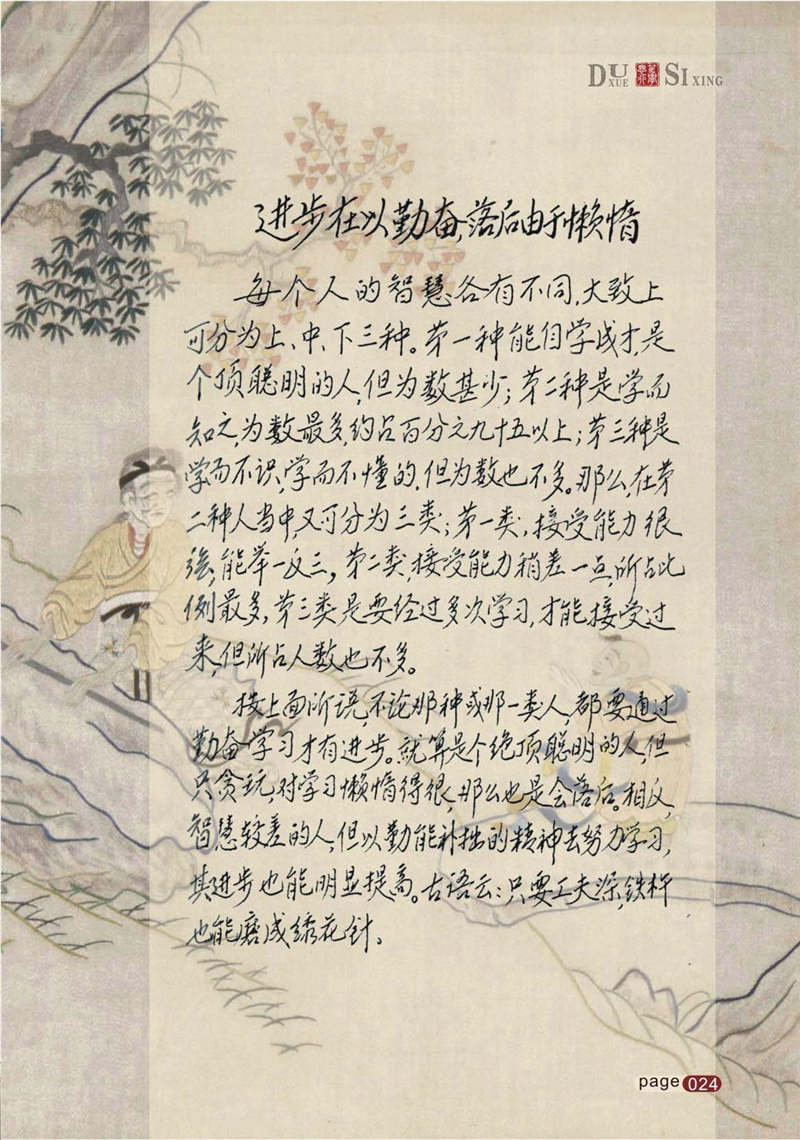 DU XUE SI XING
进步在以勤奋,落后由于懒惰
每个人的智慧各有不同,大致上
可分为上、中、下三种。第一种能自学成才,是
个顶聪明的人,但为数甚少;第二种是学而
知之,为数最多,约占百分之九十五以上;第三种是
学而不识,学而不懂的,但为数也不多。那么,在第
二种人当中,又可分为三类;第一类,接受能力很
强,能举一反三,第二类,接受能力稍差一点,所占比
例最多,第三类是要经过多次学习,才能接受过
来,但所占人数也不多。
按上面所说,不论那种或那一类人,都要通过
勤奋学习才有进步。就算是个绝顶聪明的人,但
只贪玩,对学习懒惰得很,那么也是会落后。相反,
智慧较差的人,但以勤能补拙的精神去努力学习,
其进步也能明显提高。古语云:只要工夫深,铁杵
也能磨成绣花针。
page 024